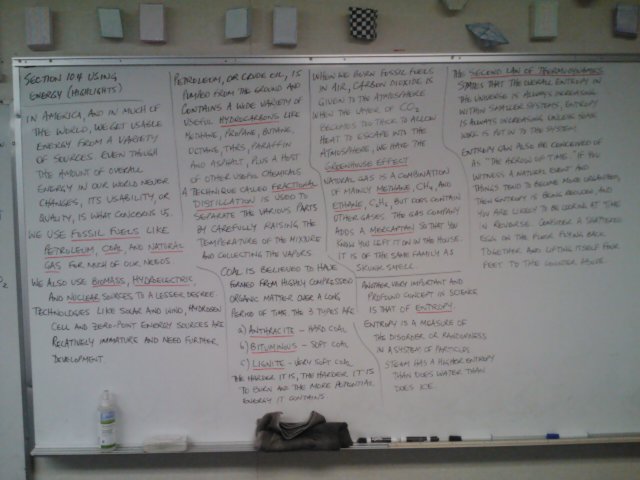 SECTION 10.4 USING
ENERGY (HIGHLIGHTS)
IN AMERICA, AND IN MUCH OF
THE WORLD, WE GET USABLE
ENERGY FROM A VARIETY
OF SOURCES. EVEN THOUGH
THE AMOUNT OF OVERALL
ENERGY IN OUR WORLD NEVER
CHANGES, ITS USABILITY, OR
QUALITY, IS WHAT CONCERNS US.
WE USE FOSSIL FUELS LIKE
PETROLEUM, COAL AND NATURAL
GAS FOR MOST OF OUR NEEDS.
WE ALSO USE BIOMASS, HYDROELECTRIC,
AND NUCLEAR SOURCES TO A LESSER DEGREE.
TECHNOLOGIES LIKE SOLAR AND WIND, HYDROGEN
CELL AND ZERO-POINT ENERGY SOURCES ARE
RELATIVELY IMMATURE AND NEED FURTHER
DEVELOPMENT.
PETROLEUM, OR CRUDE OIL, IS
PUMPED FROM THE GROUND AND
CONTAINS A WIDE VARIETY OF
USEFUL HYDROCARBONS LIKE
METHANE, PROPANE, BUTANE,
OCTANE, TARS, PARAFFIN
AND ASPHALT, PLUS A HOST
OF OTHER USEFUL CHEMICALS
A TECHNIQUE CALLED FRACTIONAL
DISTILLATION IS USED TO
SEPARATE THE VARIOUS PARTS
BY CAREFULLY RAISING THE
TEMPERATURE OF THE MIXTURE
AND COLLECTING THE VAPORS.
COAL IS BELIEVED TO HAVE
FORMED FROM HIGHLY COMPRESSED
ORGANIC MATTER OVER A LONG
PERIOD OF TIME. THE 3 TYPES ARE
a) ANTHRACITE - HARD COAL
b) BITUMINOUS - SOFT COAL
c) LIGNITE - VERY SOFT COAL
THE HARDER IT IS, THE HARDER IT IS
TO BURN AND THE MORE POTENTIAL
ENERGY IT CONTAINS
WHEN WE BURN FOSSIL FUELS
IN AIR, CARBON DIOXIDE IS
GIVEN TO THE ATMOSPHERE
WHEN THE LAYER OF CO2
BECOMES TOO THICK TO ALLOW
HEAT TO ESCAPE INTO THE
ATMOSPHERE, WE HAVE THE
GREENHOUSE EFFECT
NATURAL GAS IS A COMBINATION
OF MAINLY METHANE, CH4, AND
ETHANE, C2H6, BUT DOES CONTAIN
OTHER GASES. THE GAS COMPANY
ADDS A MERCAPTAN SO THAT YOU
KNOW YOU LEFT IT ON IN THE HOUSE.
IT IS OF THE SAME FAMILY AS
SKUNK SMELL.
ANOTHER VERY IMPORTANT AND
PROFOUND CONCEPT IN SCIENCE
IS THAT OF ENTROPY.
ENTROPY IS A MEASURE OF
THE DISORDER OR RANDOMNESS
IN A SYSTEM OF PARTICLES
STEAM HAS A HIGHER ENTROPY
THAN DOES WATER THAN
DOES ICE.
THE SECOND LAW OF THERMODYNAMICS
STATES THAT THE OVERALL ENTROPY IN
THE UNIVERSE IS ALWAYS INCREASING
WITHIN SMALLER SYSTEMS, ENTROPY
IS ALWAYS INCREASING UNLESS SOME
WORK IS PUT IN TO THE SYSTEM.
ENTROPY CAN ALSO BE CONCEIVED OF
AS "THE ARROW OF TIME." IF YOU
WITNESS A NATURAL EVENT AND
THINGS TEND TO BECOME MORE ORGANIZED,
THEN ENTROPY IS BEING REDUCED, AND
YOU ARE LIKELY TO BE LOOKING AT TIME
IN REVERSE. CONSIDER A SHATTERED
EGG ON THE FLOOR FLYING BACK
TOGETHER AND LIFTING ITSELF FOUR
FEET TO THE COUNTER ABOVE.